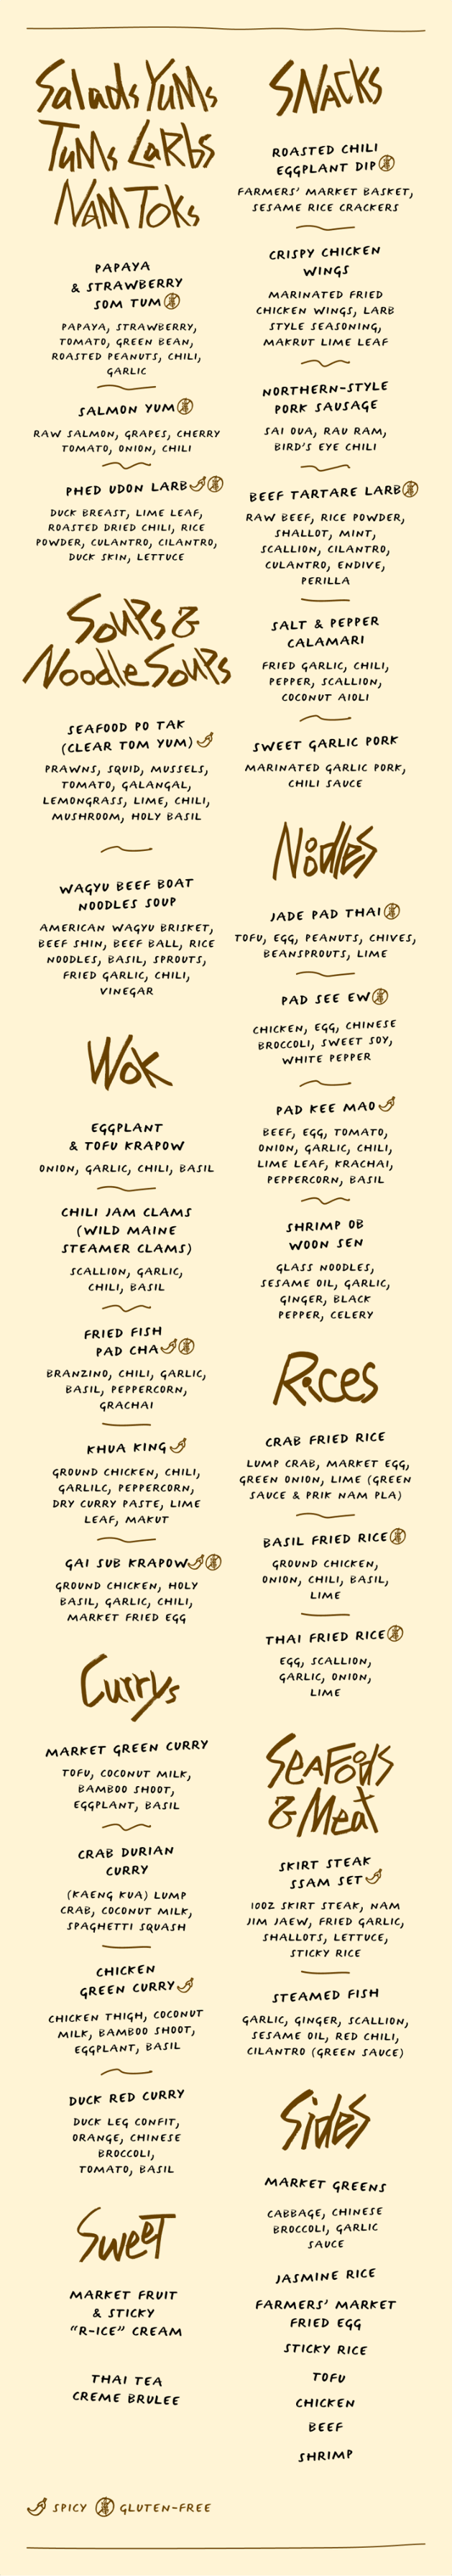 Salads Yums
Tums Larbs
Nam Toks
PAPAYA
& STRAWBERRY
SOM TUM
PAPAYA, STRAWBERRY,
TOMATO, GREEN BEAN,
ROASTED PEANUTS, CHILI,
GARLIC
SALMON YUM
RAW SALMON, GRAPES, CHERRY
TOMATO, ONION, CHILI
PHED UDON LARB
DUCK BREAST, LIME LEAF,
ROASTED DRIED CHILI, RICE
POWDER, CULANTRO, CILANTRO,
DUCK SKIN, LETTUCE
Soups &
Noodle Soups
SEAFOOD PO TAK
(CLEAR TOM YUM)
PRAWNS, SQUID, MUSSELS,
TOMATO, GALANGAL,
LEMONGRASS, LIME, CHILI,
MUSHROOM, HOLY BASIL
WAGYU BEEF BOAT
NOODLES SOUP
AMERICAN WAGYU BRISKET,
BEEF SHIN, BEEF BALL, RICE
NOODLES, BASIL, SPROUTS,
FRIED GARLIC, CHILI,
VINEGAR
Wok
EGGPLANT
& TOFU KRAPOW
ONION, GARLIC, CHILI, BASIL
CHILI JAM CLAMS
(WILD MAINE
STEAMER CLAMS)
SCALLION, GARLIC,
CHILI, BASIL
FRIED FISH
PAD CHA
BRANZINO, CHILI, GARLIC,
BASIL, PEPPERCORN,
GRACHAI
KHUA KING
GROUND CHICKEN, CHILI,
GARLILC, PEPPERCORN,
DRY CURRY PASTE, LIME
LEAF, MAKUT
GAI SUB KRAPOW
GROUND CHICKEN, HOLY
BASIL, GARLIC, CHILI,
MARKET FRIED EGG
Currys
MARKET GREEN CURRY
TOFU, COCONUT MILK,
BAMBOO SHOOT,
EGGPLANT, BASIL
CRAB DURIAN
CURRY
(KAENG KUA) LUMP
CRAB, COCONUT MILK,
SPAGHETTI SQUASH
CHICKEN
GREEN CURRY
CHICKEN THIGH, COCONUT
MILK, BAMBOO SHOOT,
EGGPLANT, BASIL
DUCK RED CURRY
DUCK LEG CONFIT,
ORANGE, CHINESE
BROCCOLI,
TOMATO, BASIL
Sweet
MARKET FRUIT
& STICKY
“R-ICE” CREAM
THAI TEA
CREME BRULEE
SNACKS
ROASTED CHILI
EGGPLANT DIP
FARMERS’ MARKET BASKET,
SESAME RICE CRACKERS
CRISPY CHICKEN
WINGS
MARINATED FRIED
CHICKEN WINGS, LARB
STYLE SEASONING,
MAKRUT LIME LEAF
NORTHERN-STYLE
PORK SAUSAGE
SAI OUA, RAU RAM,
BIRD’S EYE CHILI
BEEF TARTARE LARB
RAW BEEF, RICE POWDER,
SHALLOT, MINT,
SCALLION, CILANTRO,
CULANTRO, ENDIVE,
PERILLA
SALT & PEPPER
CALAMARI
FRIED GARLIC, CHILI,
PEPPER, SCALLION,
COCONUT AIOLI
SWEET GARLIC PORK
MARINATED GARLIC PORK,
CHILI SAUCE
Noodles
JADE PAD THAI
TOFU, EGG, PEANUTS, CHIVES,
BEANSPROUTS, LIME
PAD SEE EW
CHICKEN, EGG, CHINESE
BROCCOLI, SWEET SOY,
WHITE PEPPER
PAD KEE MAO
BEEF, EGG, TOMATO,
ONION, GARLIC, CHILI,
LIME LEAF, KRACHAI,
PEPPERCORN, BASIL
SHRIMP OB
WOON SEN
GLASS NOODLES,
SESAME OIL, GARLIC,
GINGER, BLACK
PEPPER, CELERY
Rices
CRAB FRIED RICE
LUMP CRAB, MARKET EGG,
GREEN ONION, LIME (GREEN
SAUCE & PRIK NAM PLA)
BASIL FRIED RICE
GROUND CHICKEN,
ONION, CHILI, BASIL,
LIME
THAI FRIED RICE
EGG, SCALLION,
GARLIC, ONION,
LIME
SeaFoods
& Meat
SKIRT STEAK
SSAM SET
10OZ SKIRT STEAK, NAM
JIM JAEW, FRIED GARLIC,
SHALLOTS, LETTUCE,
STICKY RICE
STEAMED FISH
GARLIC, GINGER, SCALLION,
SESAME OIL, RED CHILI,
CILANTRO (GREEN SAUCE)
Sides
MARKET GREENS
CABBAGE, CHINESE
BROCCOLI, GARLIC
SAUCE
JASMINE RICE
FARMERS’ MARKET
FRIED EGG
STICKY RICE
TOFU
CHICKEN
BEEF
SHRIMP
SPICY GLUTEN-FREE